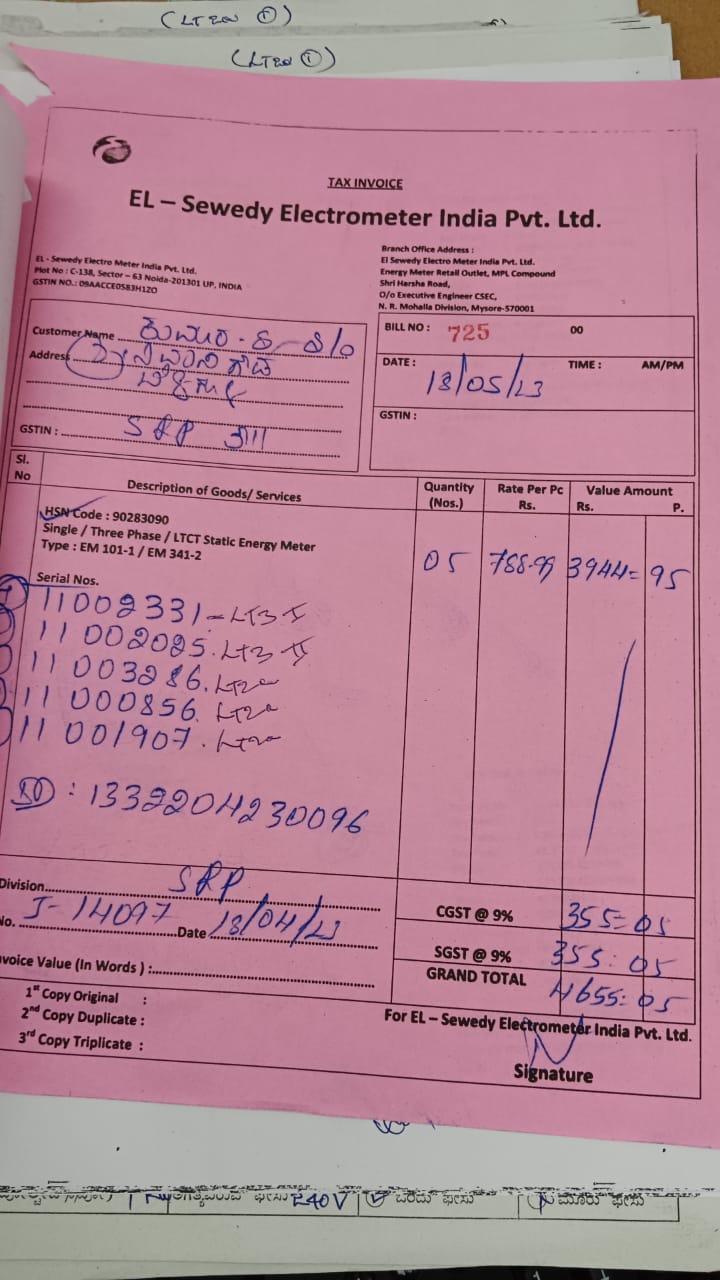 (LT2a ①)
(LT2a ①)
TAX INVOICE
EL – Sewedy Electrometer India Pvt. Ltd.
EL - Sewedy Electro Meter India Pvt. Ltd.
Plot No : C-138, Sector – 63 Noida-201301 UP, INDIA
GSTIN NO.: 09AACCE0583H1ZO
Branch Office Address :
El Sewedy Electro Meter India Pvt. Ltd.
Energy Meter Retail Outlet, MPL Compound
Shri Harsha Road,
O/o Executive Engineer CSEC,
N. R. Mohalla Division, Mysore-570001
Customer Name S/o
Address
GSTIN : SRP
BILL NO : 725 00
DATE : 18/05/23 TIME : AM/PM
GSTIN :
Sl. No Description of Goods/ Services Quantity (Nos.) Rate Per Pc Rs. Value Amount Rs. P.
HSN Code : 90283090
Single / Three Phase / LTCT Static Energy Meter
Type : EM 101-1 / EM 341-2
05 788.99 3944=95
Serial Nos.
11002331 - LT3 II
11 002025. LT3 II
11 003286. LT2a
11 000856. LT2a
11 001907. LT2a
SO : 1332204230096
Division SRP
No. I-14097 Date 18/04/23
CGST @ 9% 355=05
SGST @ 9% 355:05
GRAND TOTAL 4655:05
nvoice Value (In Words ) :
1st Copy Original :
2nd Copy Duplicate :
3rd Copy Triplicate :
For EL – Sewedy Electrometer India Pvt. Ltd.
Signature
240V ಒಂದು ಫೇಸು ಮೂರು ಫೇಸು